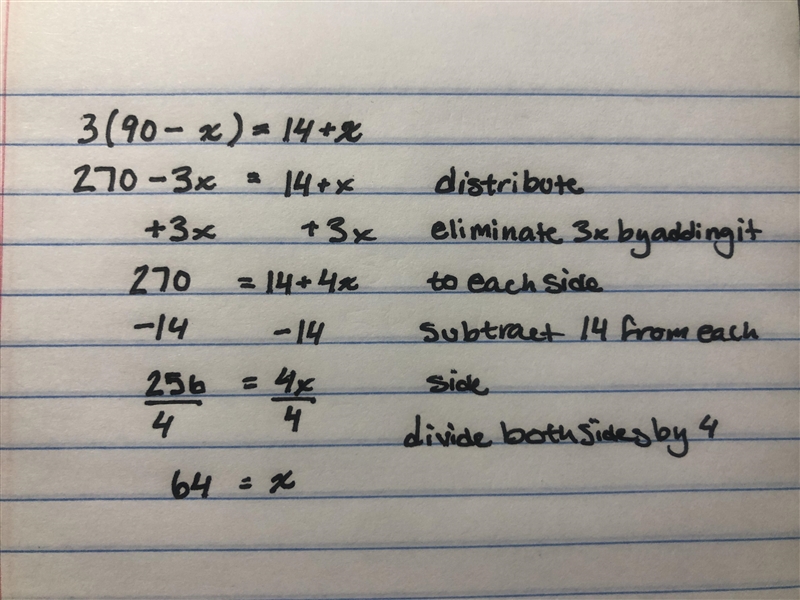 3(90 - x) = 14 + x
270 - 3x = 14 + x distribute
+3x +3x eliminate 3x by adding it
270 = 14 + 4x to each side
-14 -14 subtract 14 from each
256/4 = 4x/4 side
divide both sides by 4
64 = x